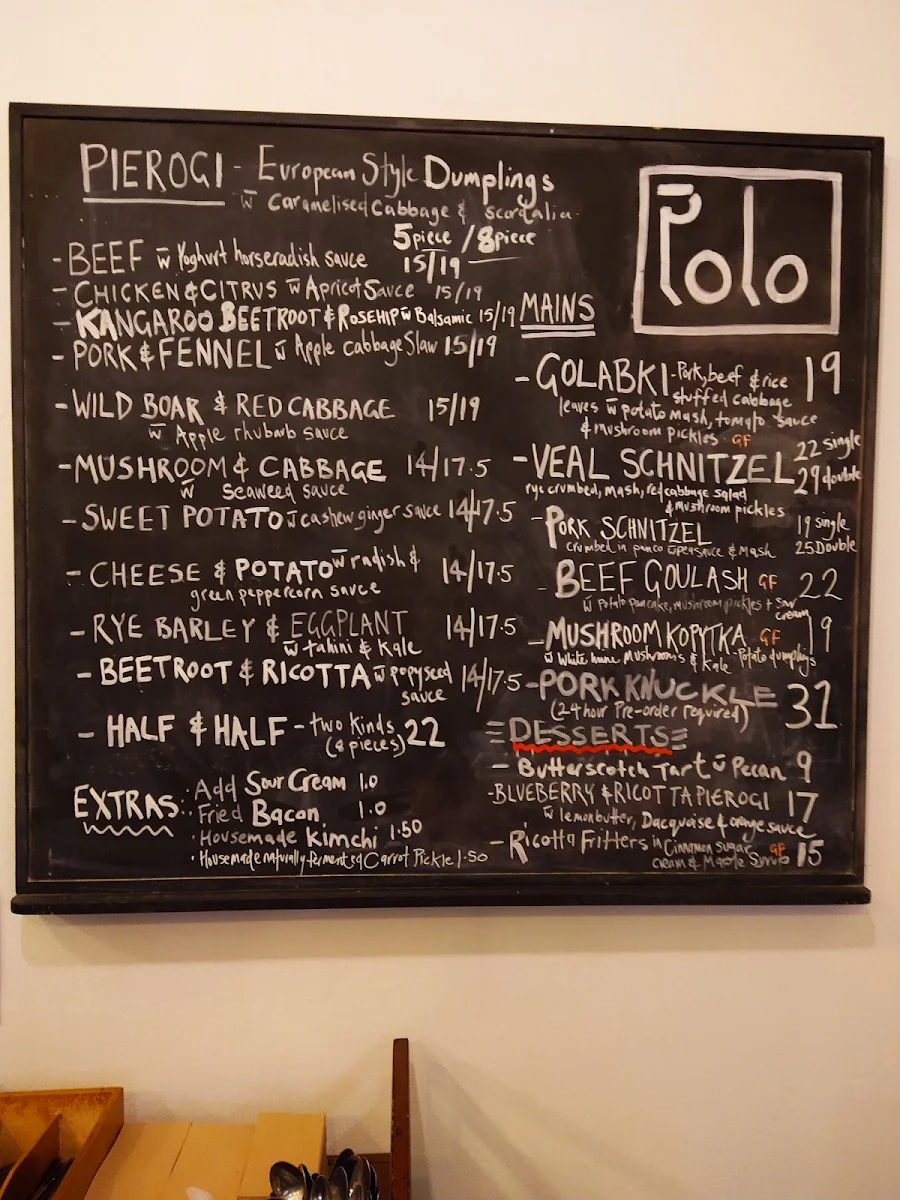 PIEROGI - European Style Dumplings
w̄ Caramelised Cabbage & scordalia
5 piece / 8 piece
- BEEF w̄ Yoghurt horseradish sauce 15/19
- CHICKEN & CITRUS w̄ Apricot Sauce 15/19
- KANGAROO BEETROOT & ROSEHIP w̄ Balsamic 15/19
- PORK & FENNEL w̄ Apple cabbage Slaw 15/19
- WILD BOAR & RED CABBAGE 15/19
w̄ Apple rhubarb sauce
- MUSHROOM & CABBAGE 14/17.5
w̄ Seaweed sauce
- SWEET POTATO w̄ cashew ginger sauce 14/17.5
- CHEESE & POTATO w̄ radish & 14/17.5
green peppercorn sauce
- RYE BARLEY & EGGPLANT 14/17.5
w̄ tahini & Kale
- BEETROOT & RICOTTA w̄ popyseed 14/17.5
sauce
- HALF & HALF - two kinds 22
(8 pieces)
EXTRAS:
· Add Sour Cream 1.0
· Fried Bacon 1.0
· Housemade Kimchi 1.50
· Housemade naturally fermented Carrot Pickle 1.50
Polo
MAINS
- GOLABKI - Pork, beef & rice 19
stuffed cabbage
leaves w̄ potato mash, tomato sauce
& mushroom pickles GF
- VEAL SCHNITZEL 22 single
29 double
rye crumbed, mash, red cabbage salad
& mushroom pickles
- PORK SCHNITZEL 19 single
crumbed in panco w̄ sauce & Mash 25 Double
- BEEF GOULASH GF 22
w̄ Potato pancake, mushroom pickles + Sour
cream
- MUSHROOM KOPYTKA GF 19
w̄ White Mushrooms & Kale - Potato dumplings
- PORK KNUCKLE 31
(24 hour Pre-order required)
DESSERTS
- Butterscotch Tart w̄ Pecan 9
- BLUEBERRY & RICOTTA PIEROGI 17
w̄ lemon butter, Dacquoise & orange sauce
- Ricotta Fritters in Cinnamon Sugar GF 15
cream & Maple Syrup